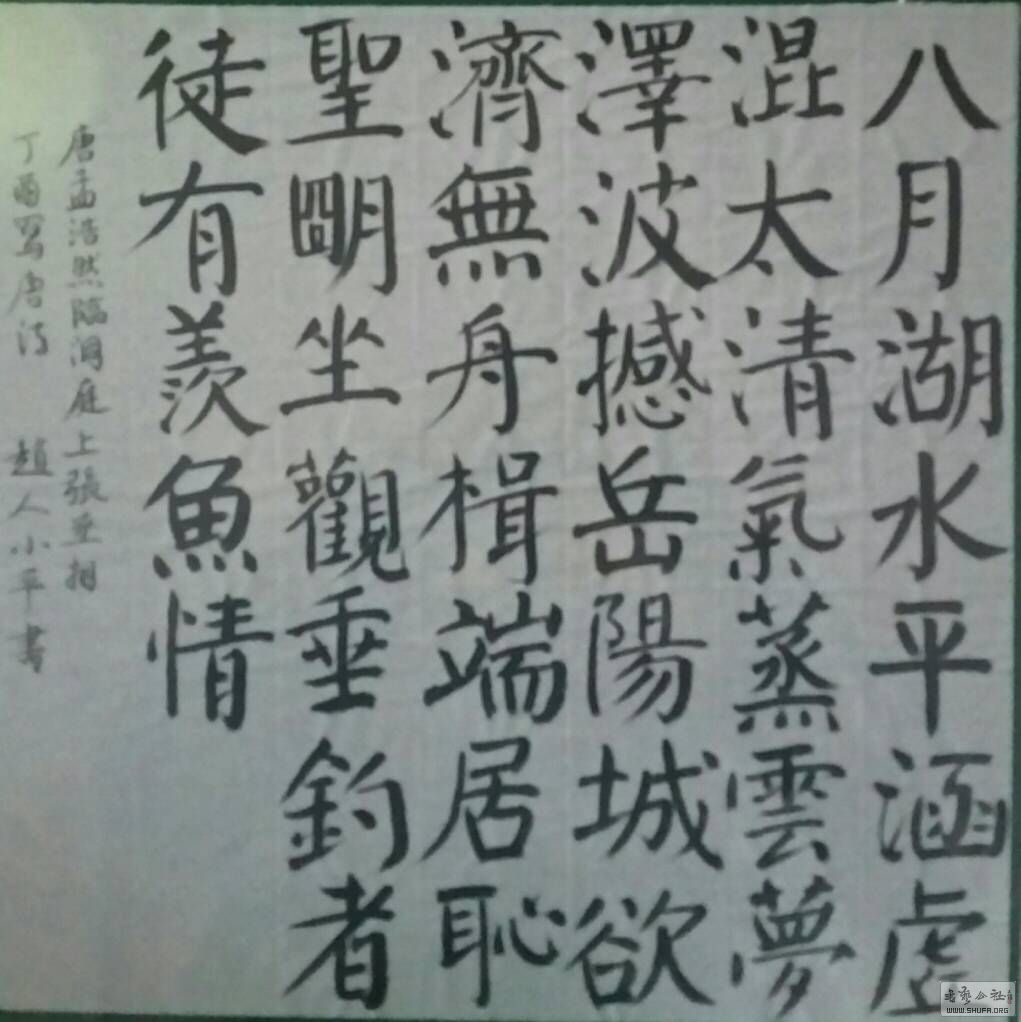 八月湖水平涵虛
混太清氣蒸雲夢
澤波撼岳陽城欲
濟無舟楫端居恥
聖明坐觀垂釣者
徒有羨魚情
唐孟浩然臨洞庭上張丞相
丁酉寫唐詩 趙人小平書
书艺公社
WWW.SHUFA.ORG